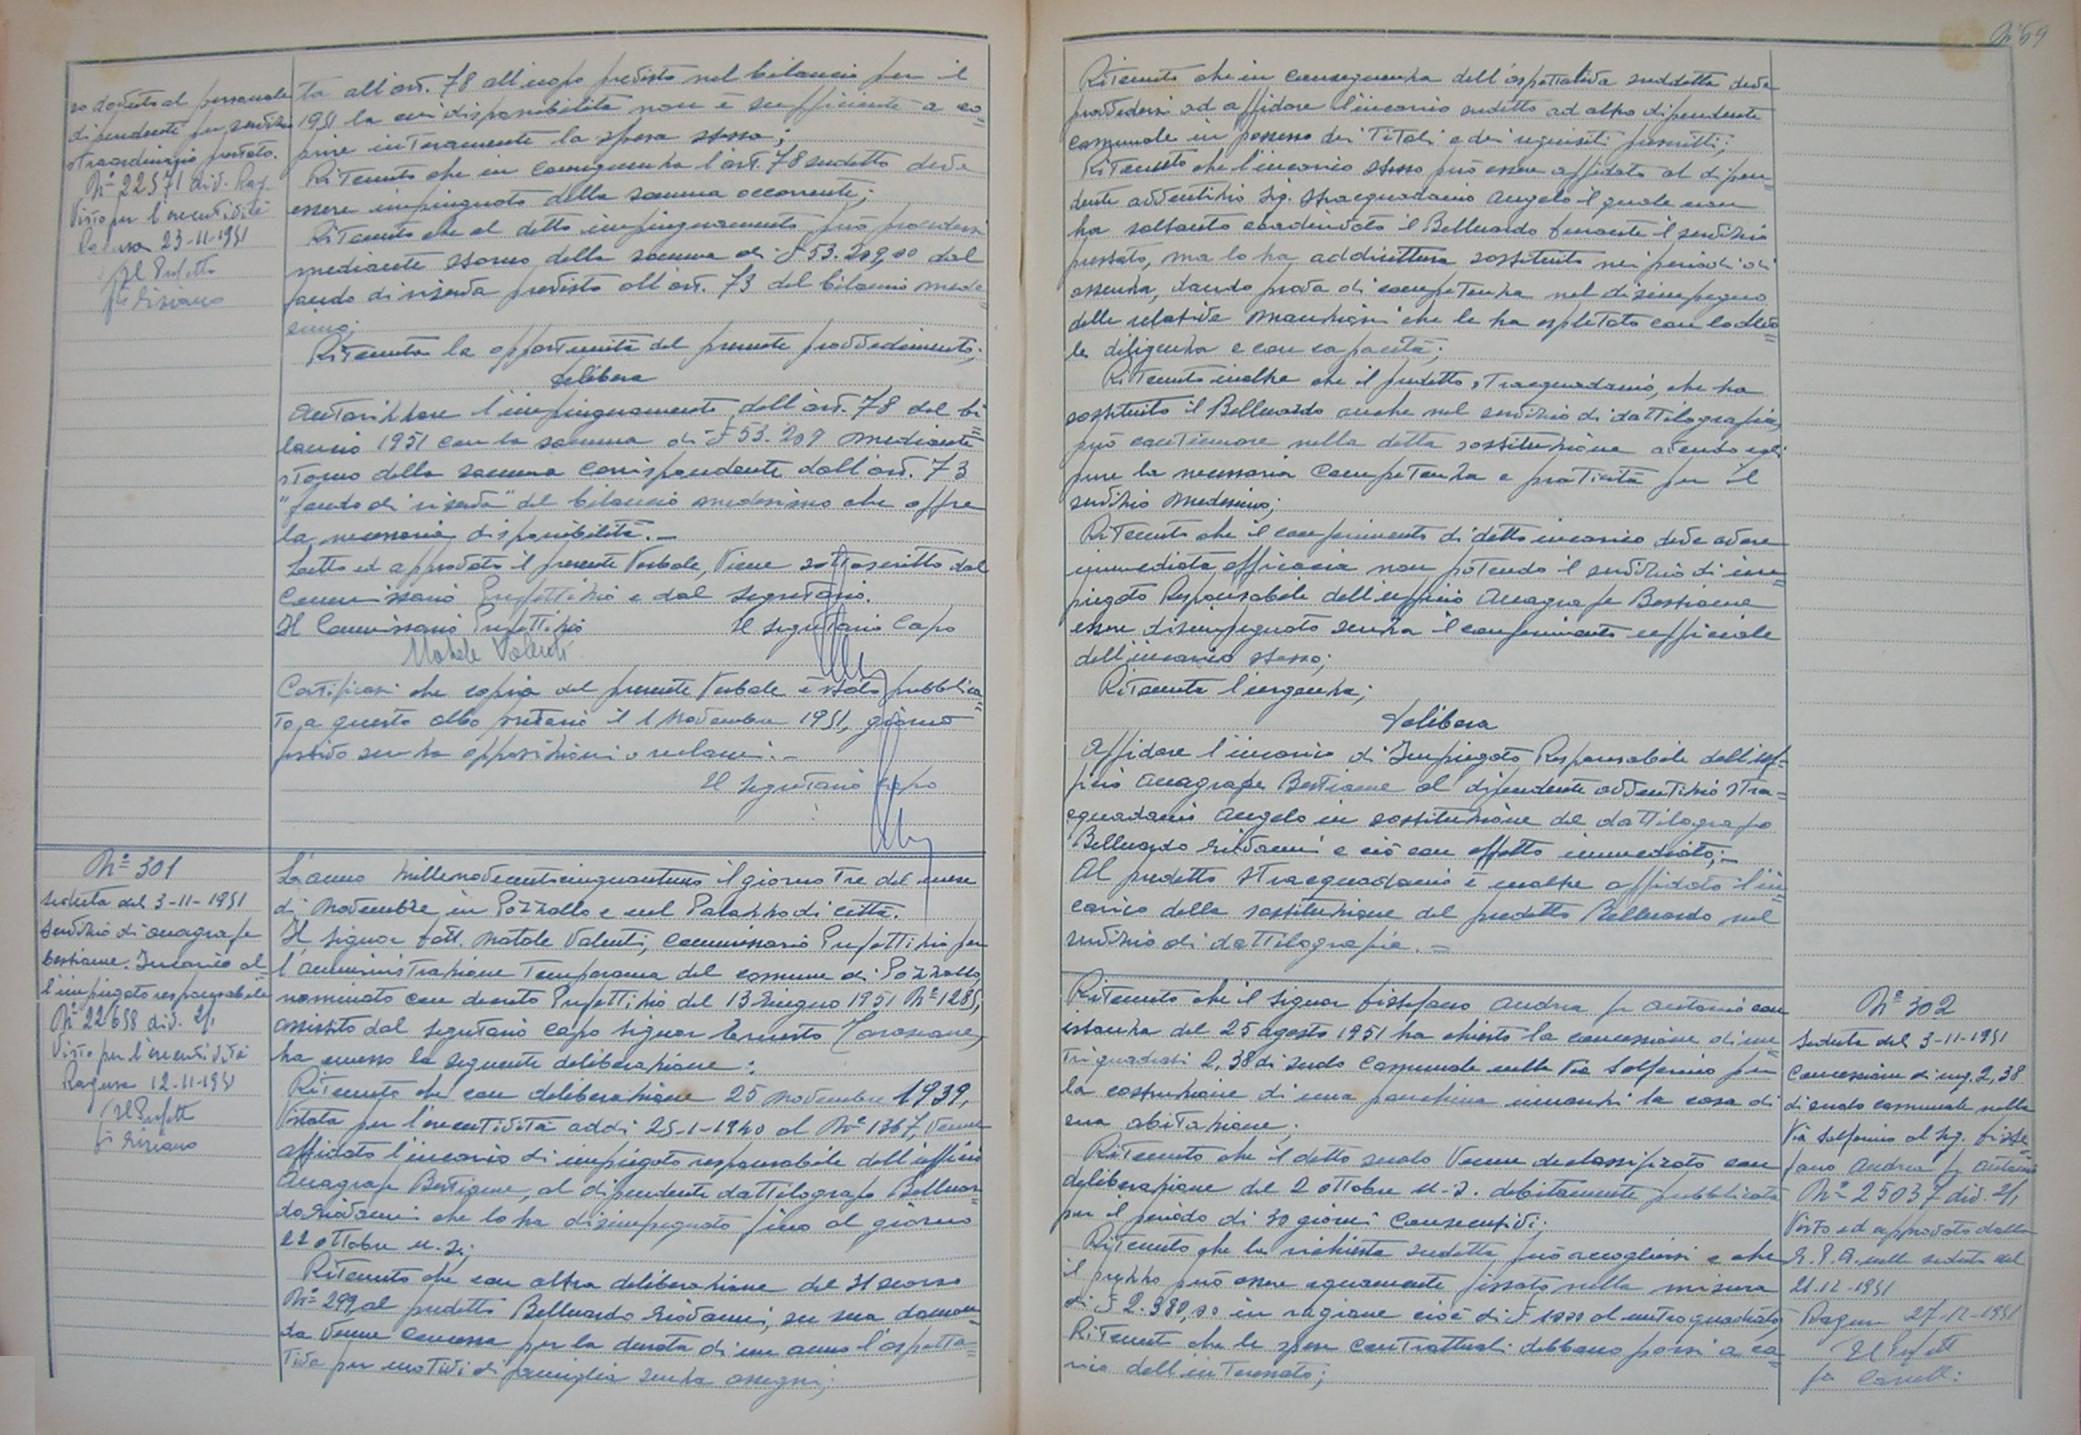 so dovuto al personale
dipendente per servizio
straordinario prestato.
Nº 22571 div. Rag.
Visto per l'esecutività
Ragusa 23-11-1951
Il Prefetto
ta all'art. 78 all'uopo previsto nel bilancio per il
1951 la cui disponibilità non è sufficiente a co=
prire interamente la spesa stessa;
Ritenuto che in conseguenza l'art. 78 sudetto deve
essere impinguato della somma occorrente;
Ritenuto che al detto impinguamento può provvedersi
mediante storno della somma di £ 53.209,00 dal
fondo di riserva previsto all'art. 73 del bilancio mede=
simo;
Ritenuta la opportunità del presente provvedimento;
delibera
Autorizzare l'impinguamento dell'art. 78 del bi=
lancio 1951 con la somma di £ 53.209 mediante
storno della somma corrispondente dall'art. 73
"fondo di riserva" del bilancio medesimo che offre
la necessaria disponibilità.=
Letto ed approvato il presente Verbale, Viene sottoscritto dal
Commissario Prefettizio e dal Segretario.
Il Commissario Prefettizio Il Segretario Capo
Natale Valenti
Certificasi che copia del presente Verbale è stata pubblica=
ta, a questo albo pretorio il 1 Novembre 1951, giorno
festivo senza opposizioni o reclami.=
Il Segretario Capo
Nº 301
Seduta del 3-11-1951
Servizio di anagrafe
bestiame. Incarico al=
l'impiegato responsabile
Nº 22658 div. 2/1
Visto per l'esecutività
Ragusa 12-11-1951
Il Prefetto
L'anno Millenovecentocinquantuno il giorno Tre del mese
di Novembre in Pozzallo e nel Palazzo di città.
Il Signor Dott. Natale Valenti, Commissario Prefettizio per
l'amministrazione Temporanea del comune di Pozzallo,
nominato con decreto Prefettizio del 13 Giugno 1951 Nº 1285,
assistito dal Segretario capo Signor Ernesto
ha emesso la seguente deliberazione:
Ritenuto che con deliberazione 25 Novembre 1939,
Vistata per l'esecutività addì 25-1-1940 al Nº 1367, Venne
affidato l'incarico di impiegato responsabile dell'ufficio
Anagrafe Bestiame, al dipendente dattilografo Belluar=
do Giovanni che lo ha disimpegnato fino al giorno
22 ottobre u.s.;
Ritenuto che con altra deliberazione del 31 scorso
Nº 299, al predetto Belluardo Giovanni, su sua doman=
da Venne concessa per la durata di un anno l'aspetta=
tiva per motivi di famiglia senza assegni;
Nº 59
Ritenuto che in conseguenza dell'aspettativa suddetta deve
provvedersi ad affidare l'incarico sudetto ad altro dipendente
comunale in possesso dei Titoli e dei requisiti prescritti;
Ritenuto che l'incarico stesso può essere affidato al dipen=
dente avventizio Sig. Stracquadanio Angelo il quale non
ha soltanto coadiuvato il Belluardo durante il servizio
prestato, ma lo ha addirittura sostituito nei periodi di
assenza, dando prova di competenza nel disimpegno
delle relative mansioni che le ha espletato con lodevo=
le diligenza e con capacità;
Ritenuto inoltre che il predetto Stracquadanio, che ha
sostituito il Belluardo anche nel servizio di dattilografia,
può continuare nella detta sostituzione avendo egli
pure la necessaria competenza e praticità per il
servizio medesimo;
Ritenuto che il conferimento di detto incarico deve avere
immediata efficacia non potendo il servizio di im=
piegato Responsabile dell'ufficio Anagrafe Bestiame
essere disimpegnato senza il conferimento ufficiale
dell'incarico stesso;
Ritenuta l'urgenza;
delibera
Affidare l'incarico di Impiegato Responsabile dell'uf=
ficio Anagrafe Bestiame al dipendente avventizio Stra=
cquadanio Angelo in sostituzione del dattilografo
Belluardo Giovanni e ciò con effetto immediato;=
Al predetto Stracquadanio è inoltre affidato l'in=
carico della sostituzione del predetto Belluardo nel
servizio di dattilografia.=
Ritenuto che il Signor Fissefano Andrea fu Antonio con
istanza del 25 agosto 1951 ha chiesto la concessione di me=
tri quadrati 2,38 di suolo Comunale nella Via Solferino per
la costruzione di una panchina innanzi la casa di
sua abitazione;
Ritenuto che il detto suolo Venne declassificato con
deliberazione del 2 ottobre u.s. debitamente pubblicata
per il periodo di 30 giorni consecutivi;
Ritenuto che la richiesta sudetta può accogliersi e che
il prezzo può essere equamente fissato nella misura
di £ 2.380,00 in ragione cioè di £ 1000 al metro quadrato;
Ritenuto che le spese contrattuali debbano porsi a ca=
rico dell'interessato;
Nº 302
Seduta del 3-11-1951
Concessione di mq. 2,38
di suolo comunale nella
Via Solferino al Sig. Fisse=
fano Andrea fu Antonio
Nº 25037 div. 2/1
Visto ed approvato dalla
G. P. A. nella seduta del
21-12-1951
Ragusa 27-12-1951
Il Prefetto